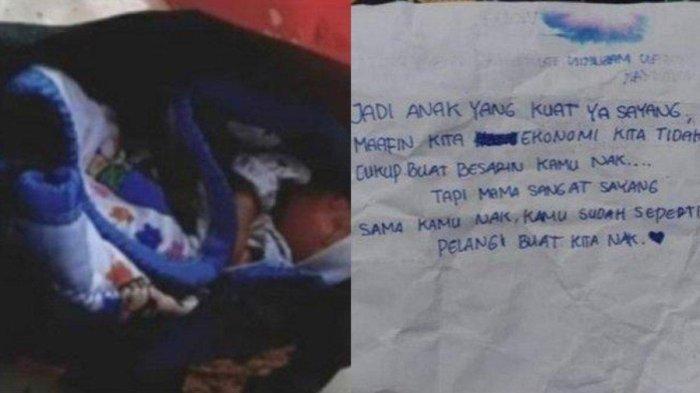 JADI ANAK YANG KUAT YA SAYANG,
MAAFIN KITA EKONOMI KITA TIDAK
CUKUP BUAT BESARIN KAMU NAK....
TAPI MAMA SANGAT SAYANG
SAMA KAMU NAK, KAMU SUDAH SEPERTI
PELANGI BUAT KITA NAK. ♥